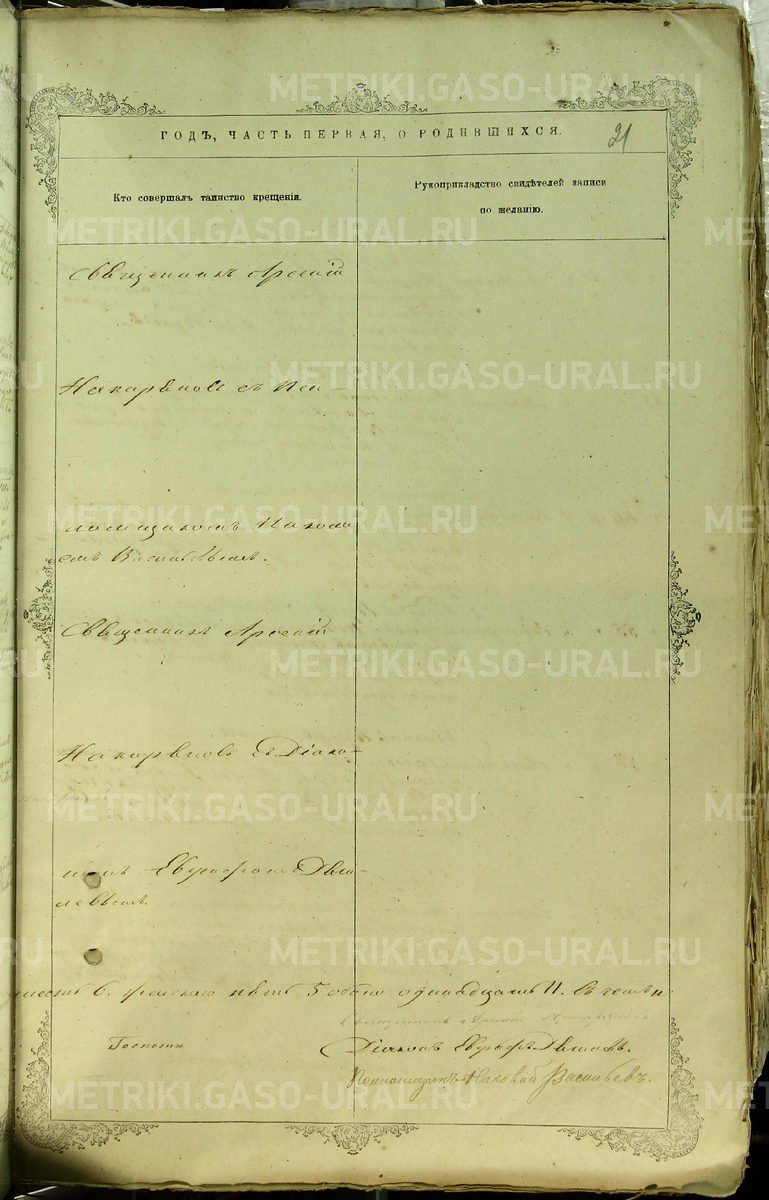 METRIKI.GASO-URAL.RU
ГОДЪ, ЧАСТЬ ПЕРВАЯ, О РОДИВШИХСЯ.
21
Кто совершалъ таинство крещенія.
Рукоприкладство свидѣтелей записи
по желанію.
Священникъ Арсеній
Накаряковъ съ Пса-
ломщикомъ Никола
емъ Васильевымъ.
Священникъ Арсеній
Накаряковъ съ Діако-
номъ
6. женскаго пять 5 обоего одинадцать 11.
Священникъ Арсеній
Діаконъ
Псаломщикъ Николай Васильевъ.